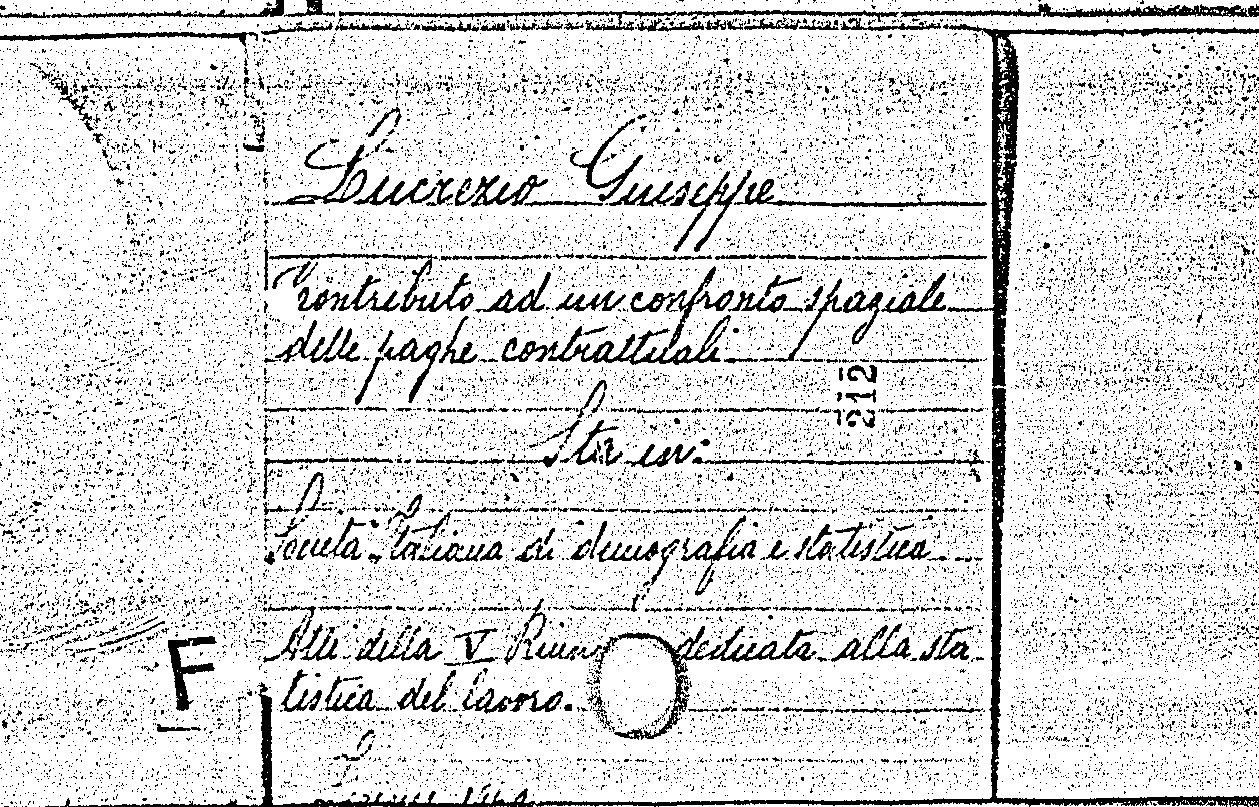 Lucrezio Giuseppe
Contributo ad un confronto spaziale
delle paghe contrattuali
212
Sta in:
Società Italiana di demografia e statistica
Atti della V Riun dedicata alla sta
tistica del lavoro.
F